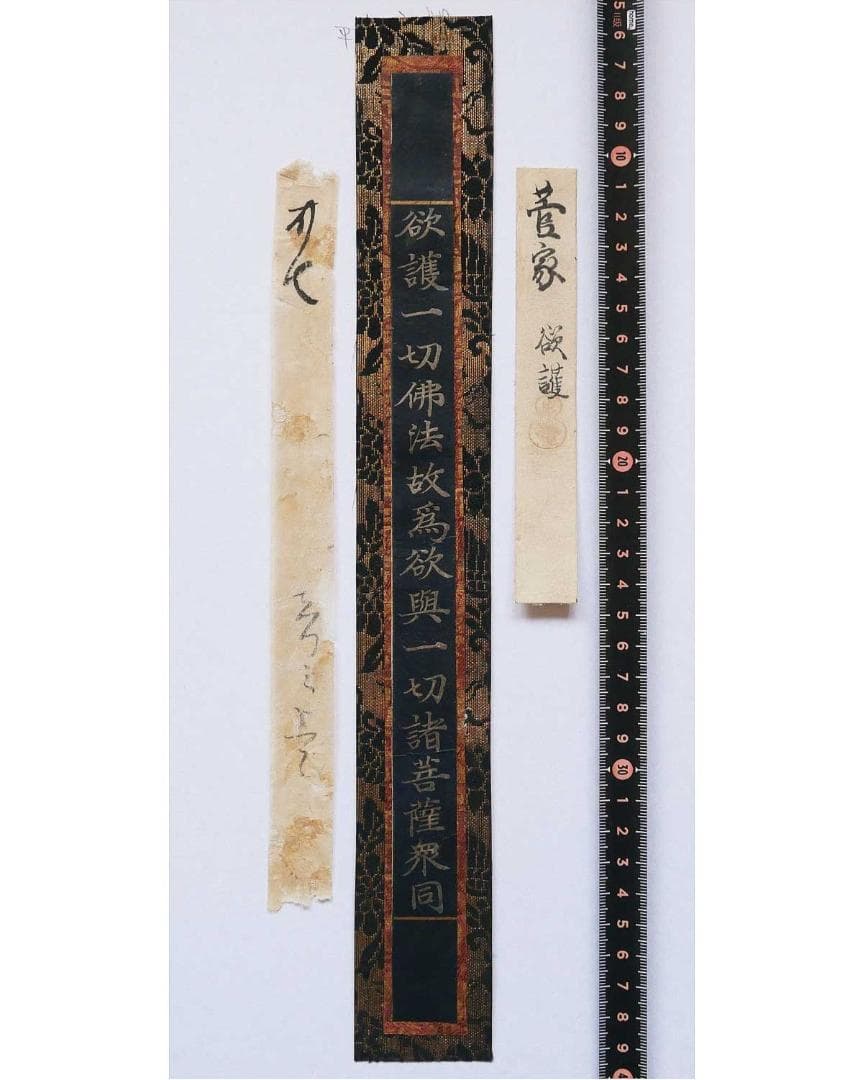 5 6 7 8 9 10 1 2 3 4 5 6 7 8 9 20 1 2 3 4 5 6 7 8 9 30 1 2 3 4 5 6 7 8 9
菅家 欲護
欲護一切佛法故爲欲與一切諸菩薩衆同
平